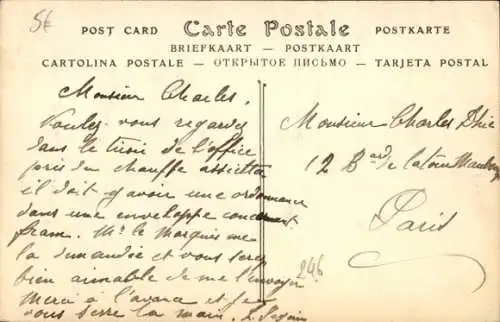 5€
POST CARD Carte Postale POSTKARTE
BRIEFKAART — POSTKAART
CARTOLINA POSTALE — ОТКРЫТОЕ ПИСЬМО — TARJETA POSTAL
Monsieur Charles,
Voulez-vous regarder
dans le tiroir de l'office
près du chauffe assiette
il doit y avoir une ordonnance
dans une enveloppe concernant
Mr le Marquis me
la demandée et vous serez
bien aimable de me l'envoyer
Merci à l'avance et je
vous serre la main.
Monsieur Charles
12 Bard de Latour Maubourg
Paris
246